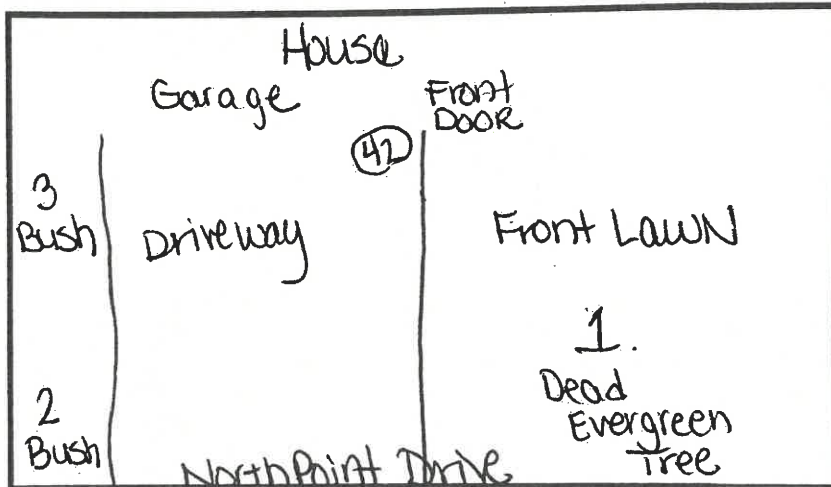 House
Garage
Front
DOOR
42
3
Bush
Driveway
Front LawN
1.
Dead
Evergreen
Tree
2
Bush
NorthPoint Drive